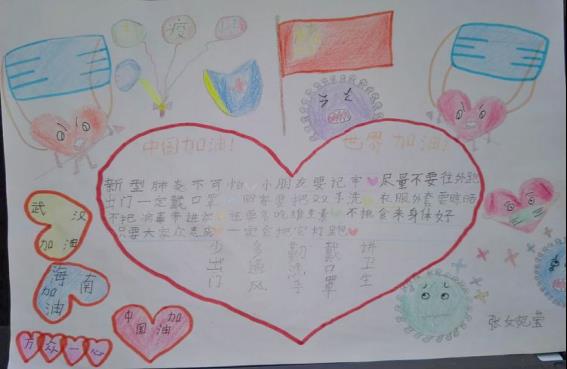 疫
中国加油！
世界加油！
新型肺炎不可怕 小朋友要记牢 尽量不要往外跑
出门一定戴口罩 回家要把双手洗 衣服外套要晾晒
不把病毒带进家 还要多吃维生素 不挑食来身体好
只要大家众志成 一定会把它打跑
少出门
多通风
勤洗手
戴口罩
讲卫生
武汉
加油
海南
加油
中国加油
万众一心
张
莹